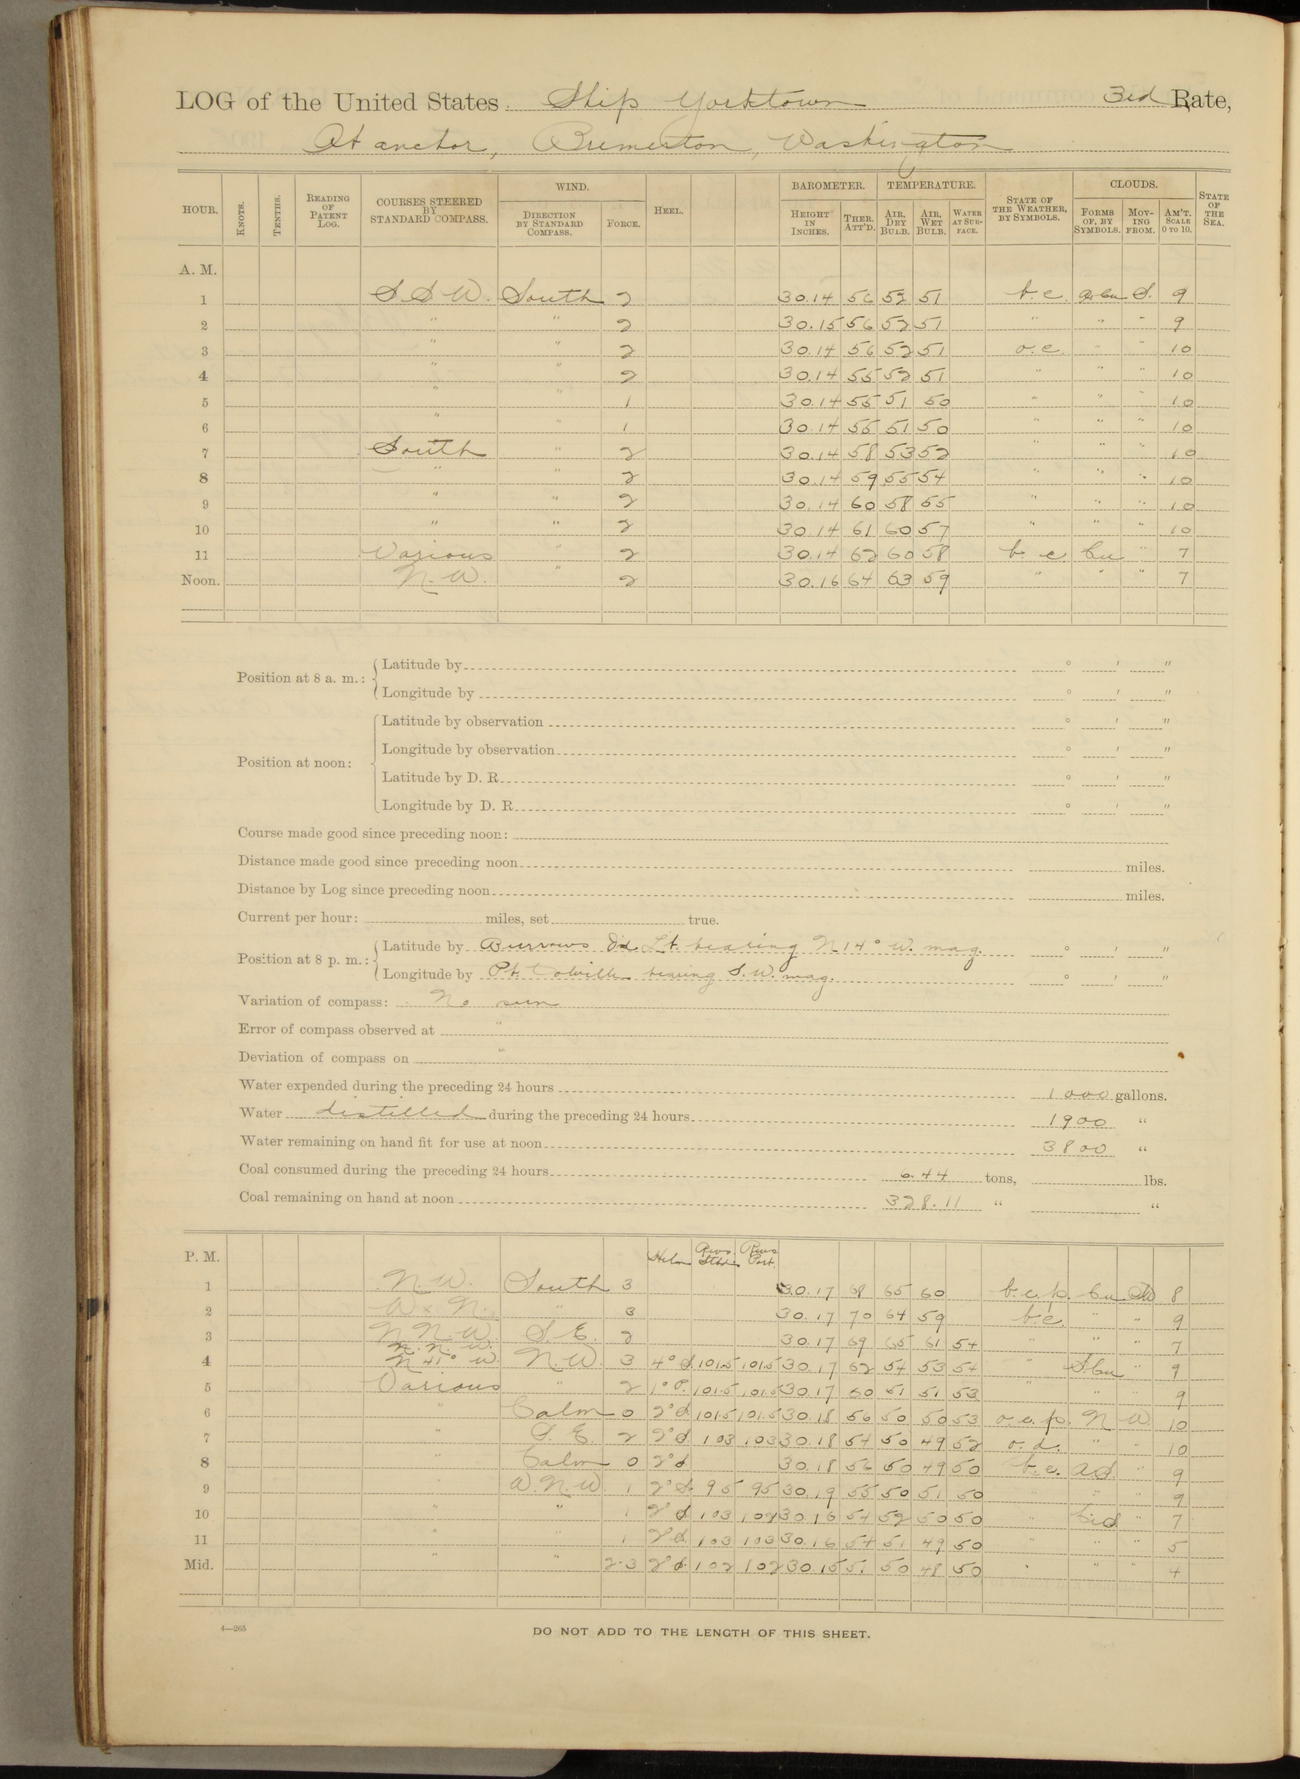 LOG of the United States Ship Yorktown 3rd Rate,
At anchor, Bremerton, Washington
HOUR. KNOTS. TENTHS. READING OF PATENT LOG. COURSES STEERED BY STANDARD COMPASS. WIND. DIRECTION BY STANDARD COMPASS. FORCE. HEEL. BAROMETER. HEIGHT IN INCHES. THER. ATT'D. TEMPERATURE. AIR, DRY BULB. AIR, WET BULB. WATER AT SURFACE. STATE OF THE WEATHER, BY SYMBOLS. CLOUDS. FORMS OF, BY SYMBOLS. MOVING FROM. AM'T. SCALE 0 TO 10. STATE OF THE SEA.
A. M.
1 S.S.W. South 2 30.14 56 52 51 b.c. S. 9
2 " " 2 30.15 56 52 51 " " " 9
3 " " 2 30.14 56 52 51 o.c. " " 10
4 " " 2 30.14 55 52 51 " " " 10
5 " " 1 30.14 55 51 50 " " " 10
6 " " 1 30.14 55 51 50 " " " 10
7 South " 2 30.14 58 53 52 " " " 10
8 " " 2 30.14 59 55 54 " " " 10
9 " " 2 30.14 60 58 55 " " " 10
10 " " 2 30.14 61 60 57 " " " 10
11 Various " 2 30.14 62 60 58 b.c Cu " 7
Noon. N.W. " 2 30.16 64 63 59 " " " 7
Position at 8 a. m.: Latitude by ° ' "
Longitude by ° ' "
Position at noon: Latitude by observation ° ' "
Longitude by observation ° ' "
Latitude by D. R. ° ' "
Longitude by D. R. ° ' "
Course made good since preceding noon:
Distance made good since preceding noon miles.
Distance by Log since preceding noon miles.
Current per hour: miles, set true.
Position at 8 p. m.: Latitude by Burrows Id Lt. bearing N 14° W. mag. ° ' "
Longitude by Pt. Colville bearing S.W. mag. ° ' "
Variation of compass: No sun
Error of compass observed at "
Deviation of compass on "
Water expended during the preceding 24 hours 1000 gallons.
Water distilled during the preceding 24 hours 1900 "
Water remaining on hand fit for use at noon 3800 "
Coal consumed during the preceding 24 hours 6.44 tons, lbs.
Coal remaining on hand at noon 328.11 " "
P. M. Helm Revs Stbd Revs Port
1 N.W. South 3 30.17 68 65 60 b.c.p. Cu SW 8
2 W x N. " 3 30.17 70 64 59 b.c. " " 9
3 N.N.W. S.E. 2 30.17 69 65 61 54 " " " 7
4 N.N.W. N 41° W N.W. 3 4° S. 101.5 101.5 30.17 62 54 53 54 " S.cu " 9
5 Various " 2 1° P. 101.5 101.5 30.17 60 51 51 53 " " " 9
6 " Calm 0 2° S 101.5 101.5 30.18 56 50 50 53 o.c.p. N W 10
7 " S.E. 2 2° S 103 103 30.18 54 50 49 52 o.d. " " 10
8 " Calm 0 2° S 30.18 56 50 49 50 b.c. " 9
9 W.N.W 1 2° S. 95 95 30.19 55 50 51 50 " " " 9
10 " " 1 2° S 103 102 30.16 54 52 50 50 " " 7
11 " " 1 2° S. 103 103 30.16 54 51 49 50 " " " 5
Mid. " " 2-3 2° S. 102 102 30.15 51 50 48 50 " " " 4
4—265
DO NOT ADD TO THE LENGTH OF THIS SHEET.